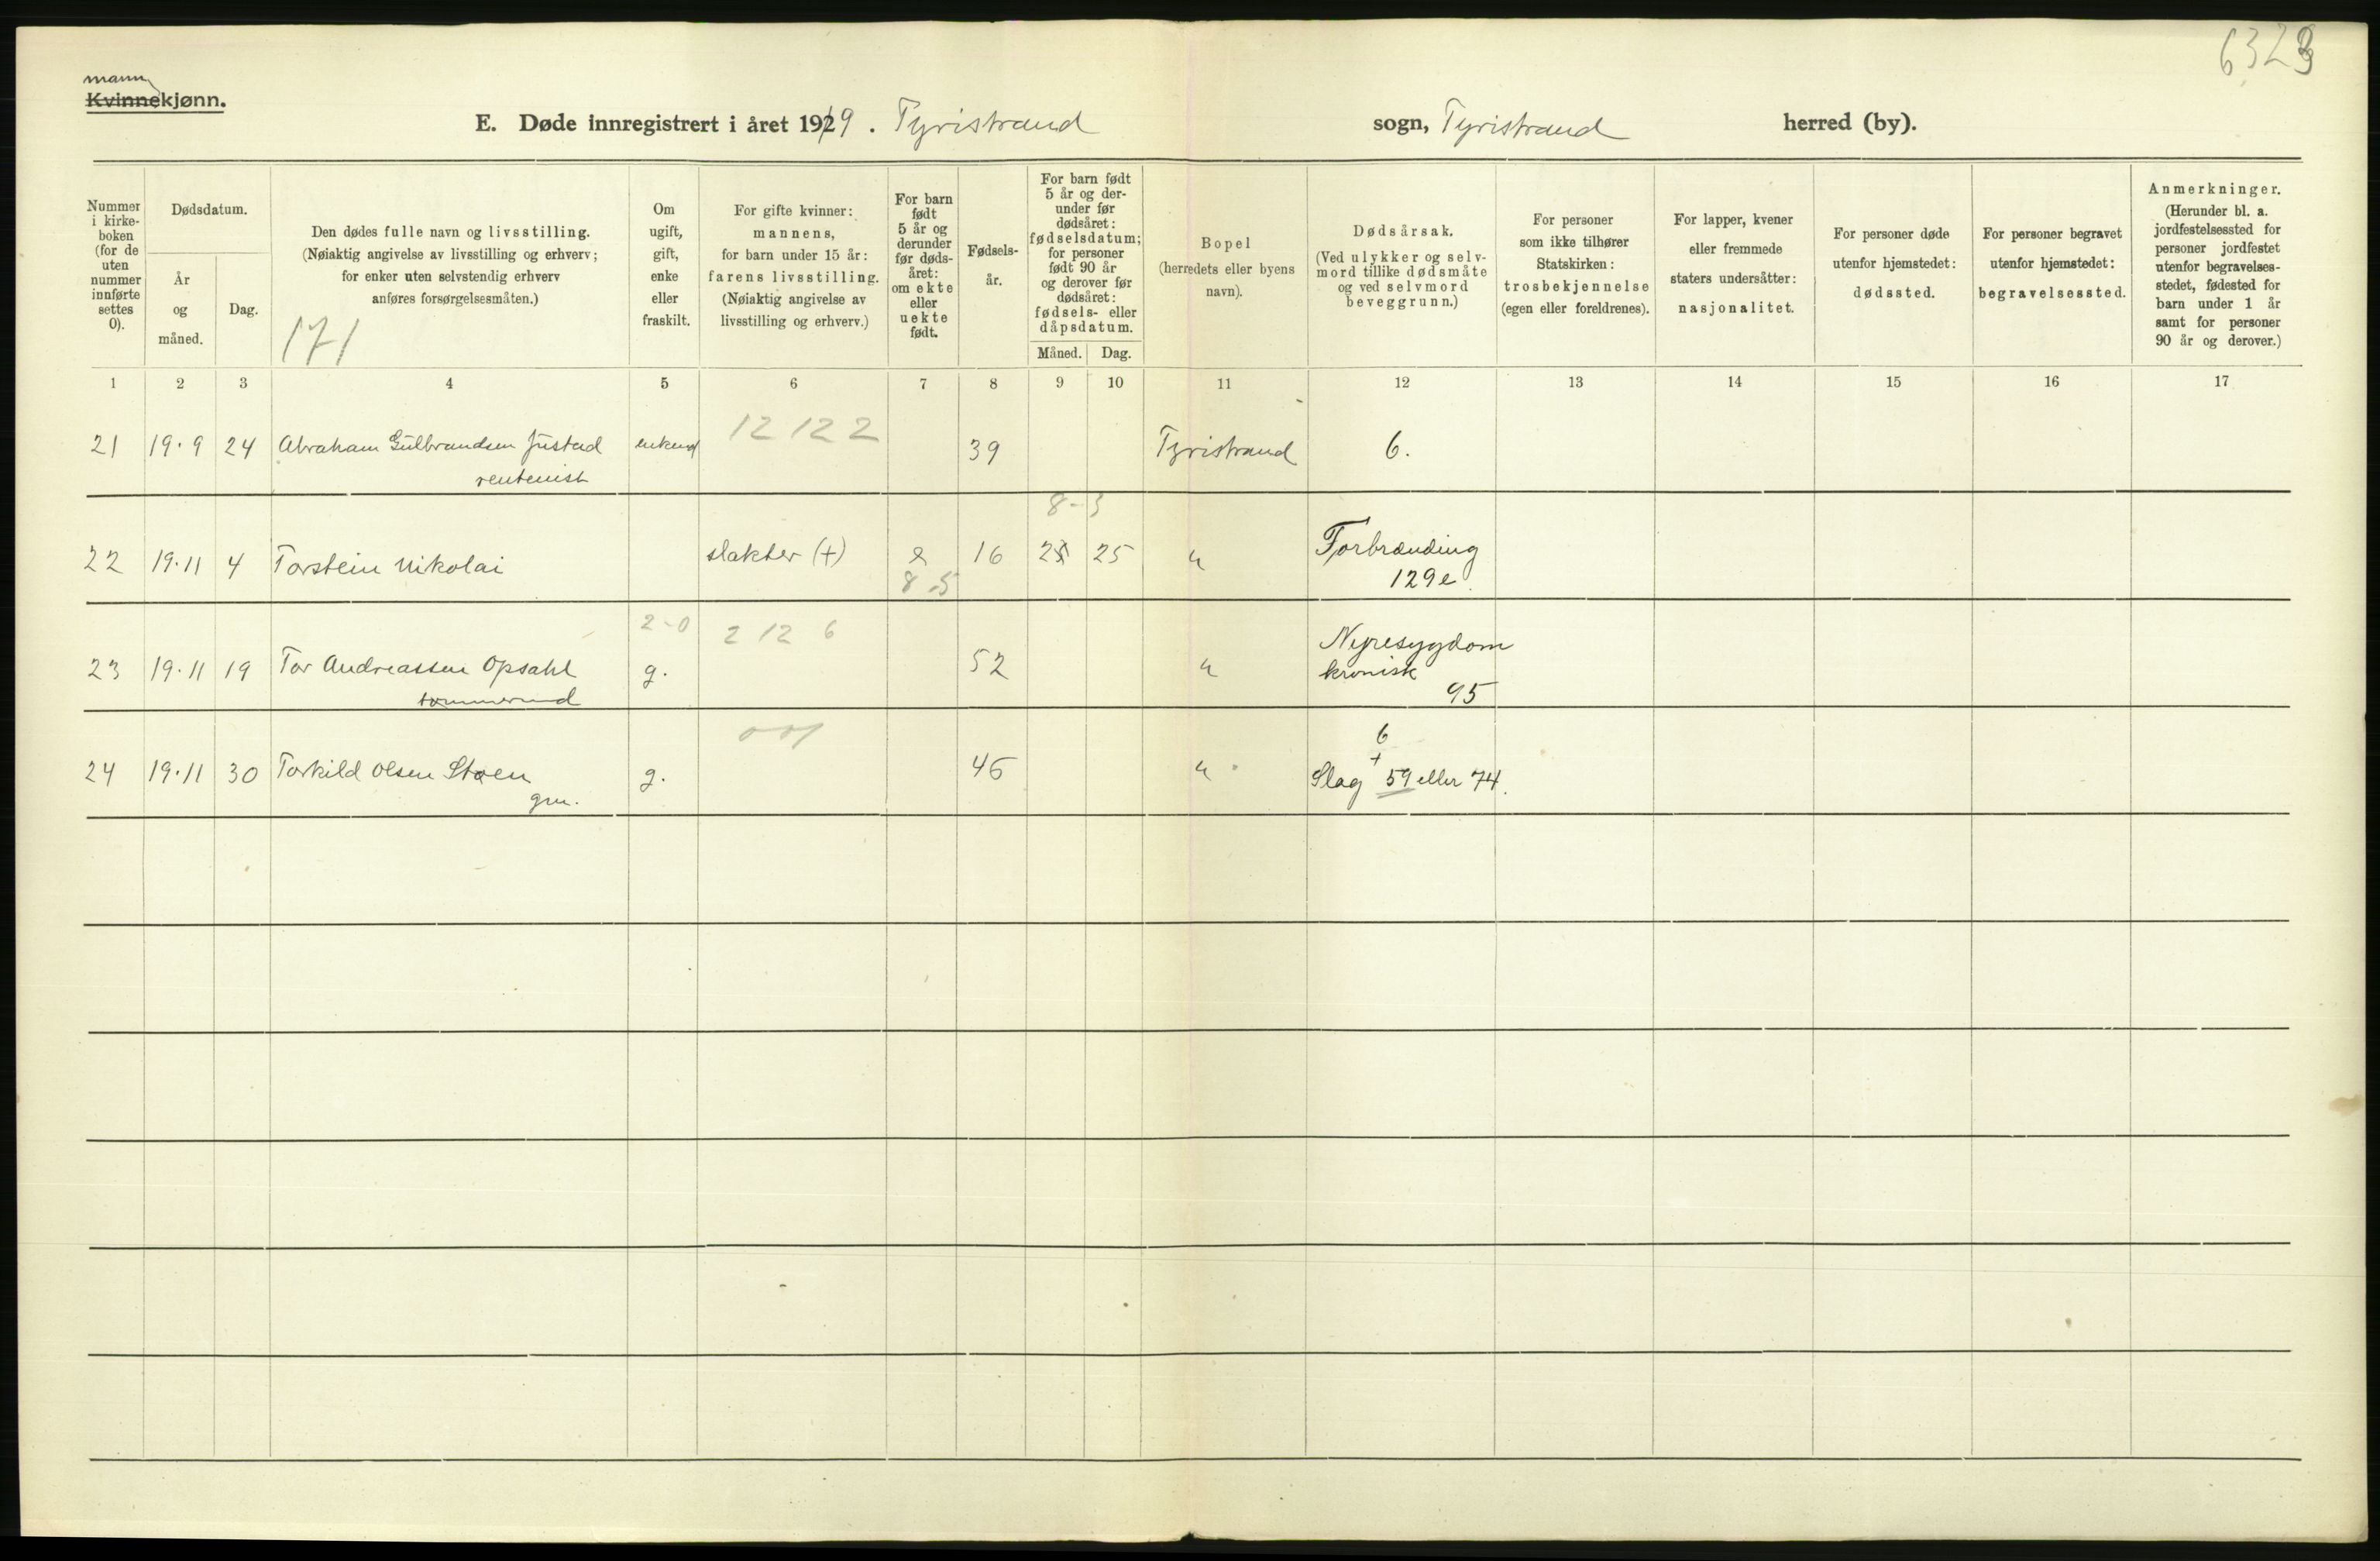 6323
mann
Kvinnekjønn.
E. Døde innregistrert i året 1919. Tyristrand sogn, Tyristrand herred (by).
Nummer i kirke-boken (for de uten nummer innførte settes 0).
Dødsdatum.
År og måned.
Dag.
Den dødes fulle navn og livsstilling.
(Nøiaktig angivelse av livsstilling og erhverv;
for enker uten selvstendig erhverv
anføres forsørgelsesmåten.)
171
Om ugift, gift, enke eller fraskilt.
For gifte kvinner:
mannens,
for barn under 15 år:
farens livsstilling.
(Nøiaktig angivelse av
livsstilling og erhverv.)
For barn født 5 år og derunder før døds-året: om ekte eller uekte født.
Fødsels-år.
For barn født 5 år og der-under før dødsåret: fødselsdatum; for personer født 90 år og derover før dødsåret: fødsels- eller dåpsdatum.
Måned.
Dag.
Bopel
(herredets eller byens
navn).
Dødsårsak.
(Ved ulykker og selv-
mord tillike dødsmåte
og ved selvmord
beveggrunn.)
For personer
som ikke tilhører
Statskirken:
trosbekjennelse
(egen eller foreldrenes).
For lapper, kvener
eller fremmede
staters undersåtter:
nasjonalitet.
For personer døde
utenfor hjemstedet:
dødssted.
For personer begravet
utenfor hjemstedet:
begravelsessted.
Anmerkninger.
(Herunder bl. a.
jordfestelsessted for
personer jordfestet
utenfor begravelses-
stedet, fødested for
barn under 1 år
samt for personer
90 år og derover.)
1 2 3 4 5 6 7 8 9 10 11 12 13 14 15 16 17
12 122
21 19.9 24 Abraham Gulbrandsen Justad enkem 39 Tyristrand 6.
rentenist
8-3
22 19.11 4 Torstein Nikolai slakter (+) e 16 25 25 " Forbrænding
8.5 129e.
2-0 2 12 6
23 19.11 19 Tor Andreassen Opsahl g. 52 " Nyresygdom
kronisk
tømmermd 95
001 6
+
24 19.11 30 Torkild Olsen Støen g. 46 " Slag 59 eller 74.
grn.